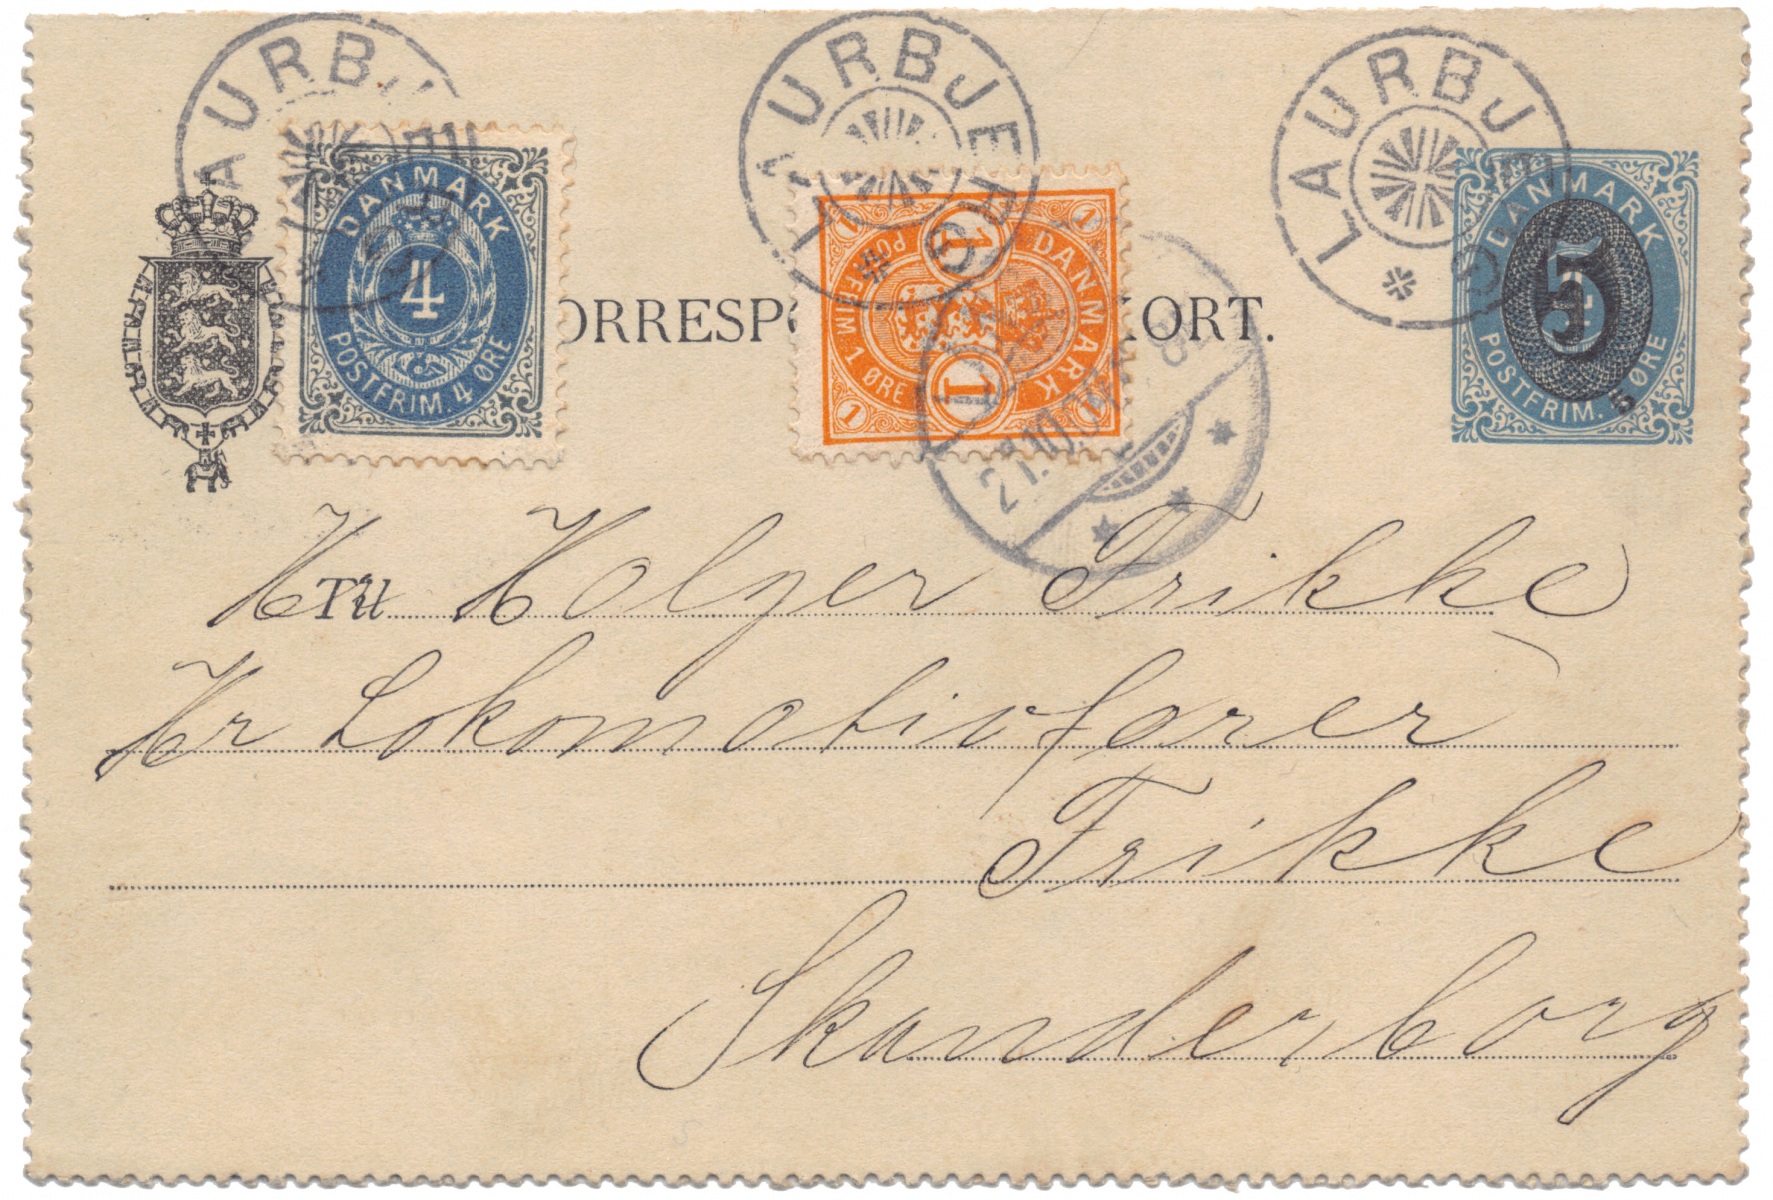 LAURBJ
LAURBJERG
LAURBJERG
DANMARK
4
POSTFRIM. 4 ØRE
1
1
DANMARK
POSTFRIM 1 ØRE
1
1
1
1
DANMARK
5
POSTFRIM. 5 ØRE
ORRESPO KORT.
21.10.
Til
Hr Holger Frikke
Hr Lokomotivfører
Frikke
Skanderborg